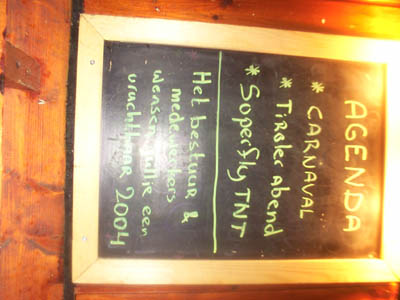 AGENDA
* CARNAVAL
* Tiroler abend
* Superfly TNT
Het bestuur &
medewerkers
wensen jullie een
vruchtbaar 2004